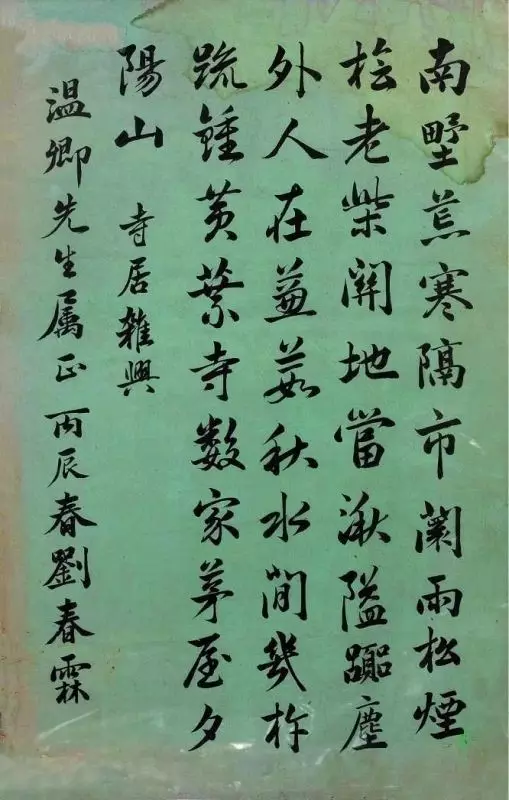 南墅荒寒隔市闤雨松煙
桧老柴關地當湫隘囂塵
外人在蒹葭秋水間幾杵
疏鍾黃葉寺數家茅屋夕
陽山 寺居雜興
溫卿先生属正丙辰春劉春霖